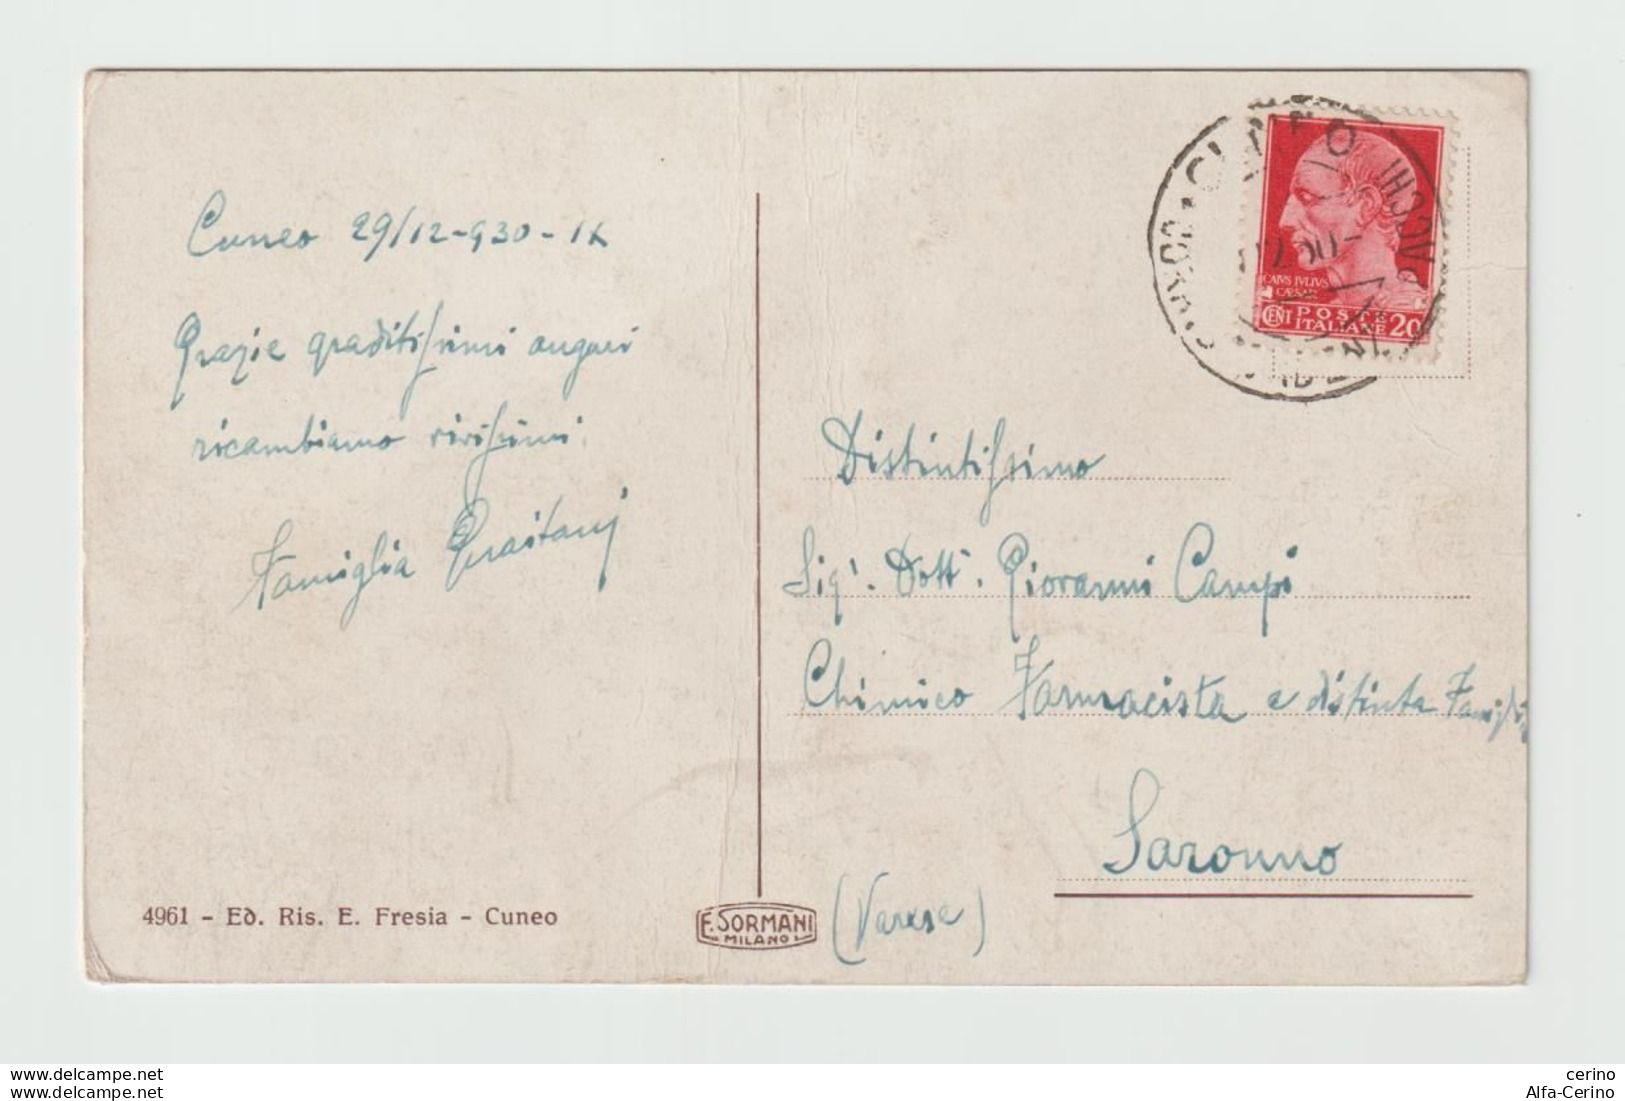 Cuneo 29/12-930-IX
Grazie graditissimi auguri
ricambiamo vivissimi.
Famiglia
4961 - Ed. Ris. E. Fresia - Cuneo
F. SORMANI
MILANO
CUNEO
PACCHI
CAIVS IVLIVS
CÆSAR
CENT POSTE ITALIANE 20
Distintissimo
Sigr. Dott. Giovanni Campi
Chimico Farmacista e distinta Famiglia
Saronno
(Varese)
www.delcampe.net
www.delcampe.net
cerino
Alfa-Cerino